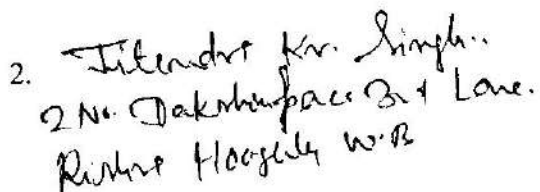 2. Jitendra Kr. Singh..
2 No. Dakshinpara 3rd Lane.
Rishra Hooghly W.B